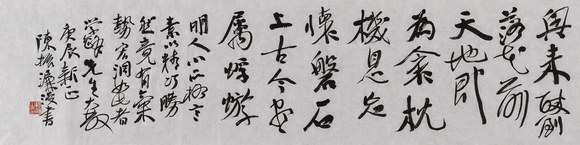 興来醉倒
落花前
天地即
為衾枕
機息忘
懷磐石
上古今盡
屬蜉蝣
明人小品
素以精巧勝
然竟有氣
勢宏潤如此者
先生大教
庚辰新正
陳振濂漫書